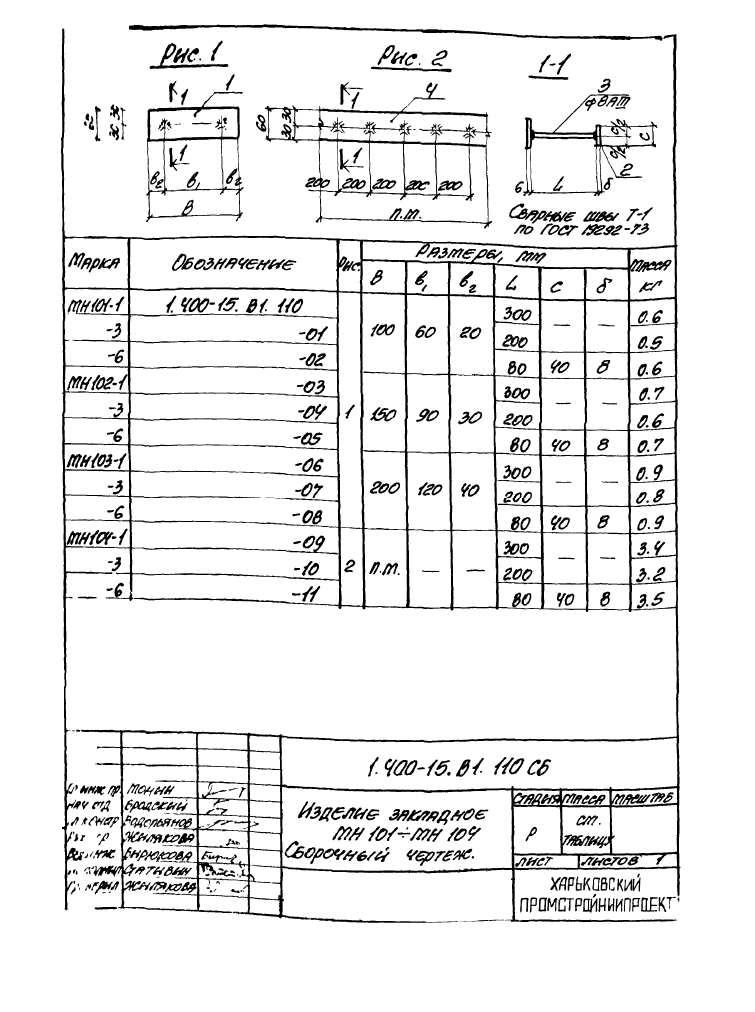 Рис. 1
Рис. 2
1-1
1
1
1
30 30
в2 в1 в2
В
4
1
1
60
30 30
200 200 200 200 200
п.м.
3
ф8АIII
с/2 с/2
с
2
6 L δ
Сварные швы Т-1
по ГОСТ 19292-73
Марка Обозначение Рис. Размеры, мм Масса кг
В в1 в2 L с δ
МН101-1 1.400-15.В1.110 1 100 60 20 300 — — 0.6
-3 -01 200 0.5
-6 -02 80 40 8 0.6
МН102-1 -03 150 90 30 300 — — 0.7
-3 -04 200 0.6
-6 -05 80 40 8 0.7
МН103-1 -06 200 120 40 300 — — 0.9
-3 -07 200 0.8
-6 -08 80 40 8 0.9
МН104-1 -09 2 п.м. — — 300 — — 3.4
-3 -10 200 3.2
-6 -11 80 40 8 3.5
1.400-15.В1.110 СБ
Монин
Нач отд Бродский
Водопьянов
Жилякова
Бирюкова
Статывич
Жилякова
Изделие закладное
МН 101÷МН 104
Сборочный чертеж.
Стадия Масса Масштаб
Р см. таблицу
Лист Листов 1
ХАРЬКОВСКИЙ
ПРОМСТРОЙНИИПРОЕКТ